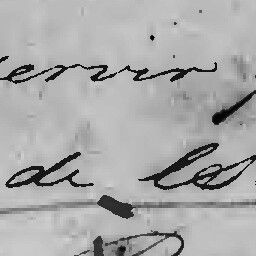 ervir
de los